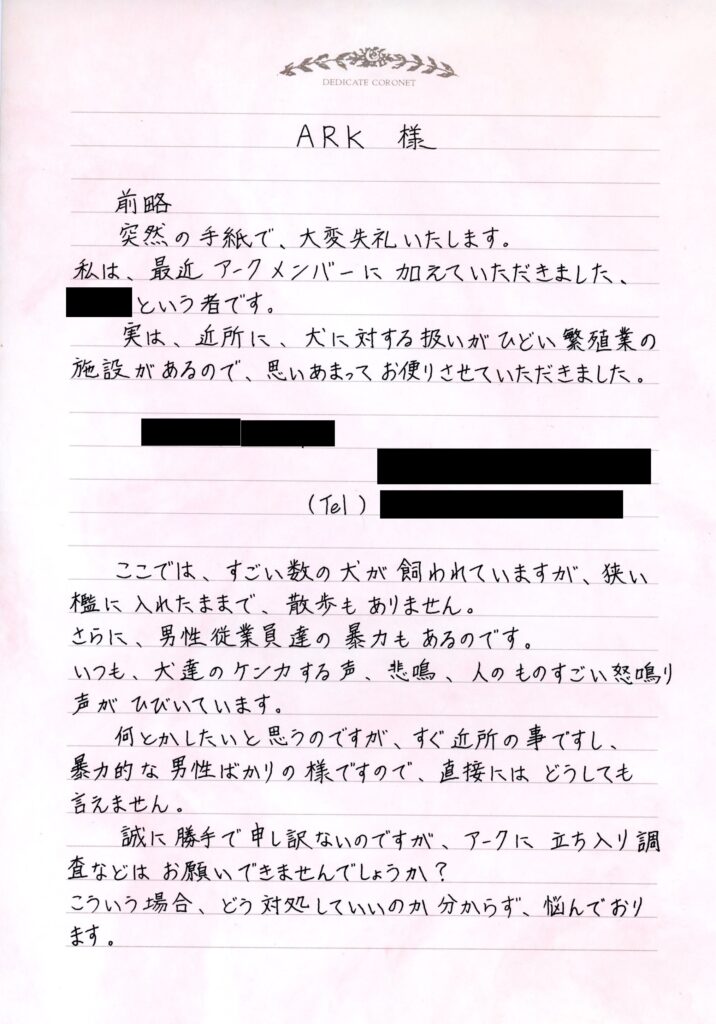 DEDICATE CORONET
ARK 様
前略
突然の手紙で、大変失礼いたします。
私は、最近アークメンバーに加えていただきました、
という者です。
実は、近所に、犬に対する扱いがひどい繁殖業の
施設があるので、思いあまってお便りさせていただきました。
(Tel)
ここでは、すごい数の犬が飼われていますが、狭い
檻に入れたままで、散歩もありません。
さらに、男性従業員達の暴力もあるのです。
いつも、犬達のケンカする声、悲鳴、人のものすごい怒鳴り
声がひびいています。
何とかしたいと思うのですが、すぐ近所の事ですし、
暴力的な男性ばかりの様ですので、直接にはどうしても
言えません。
誠に勝手で申し訳ないのですが、アークに立ち入り調
査などはお願いできませんでしょうか?
こういう場合、どう対処していいのか分からず、悩んでおり
ます。